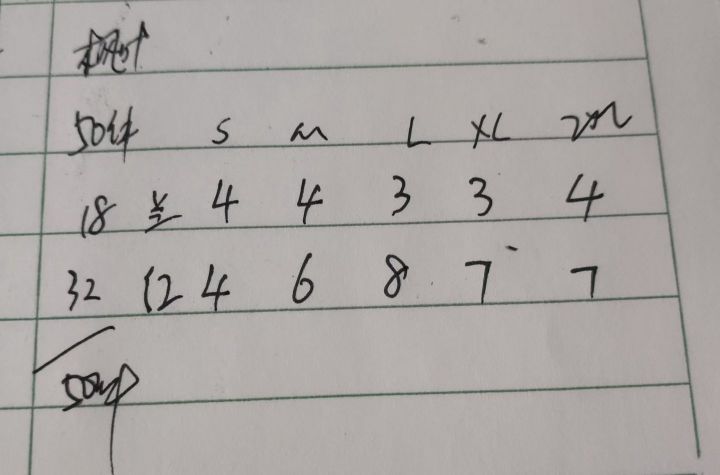 50件 S M L XL 2XL
18 4 4 3 3 4
32 12 4 6 8 7 7
50件